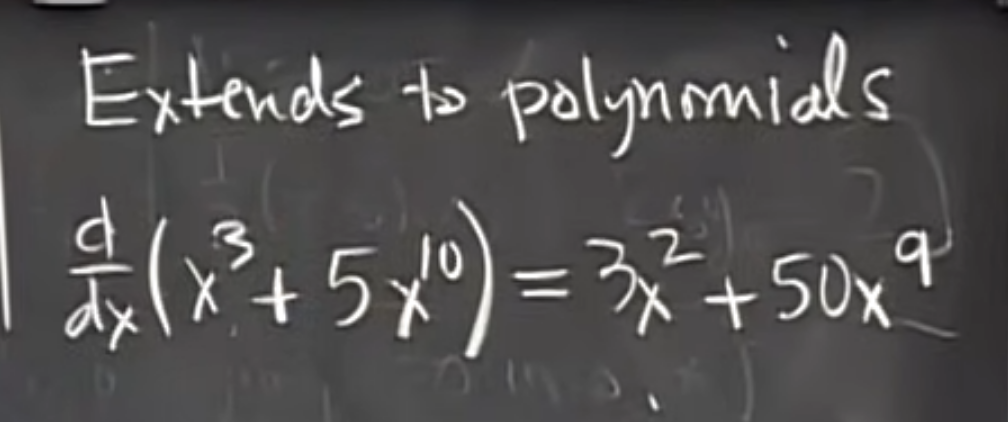 Extends to polynomials
d/dx (x³ + 5x¹⁰) = 3x² + 50x⁹